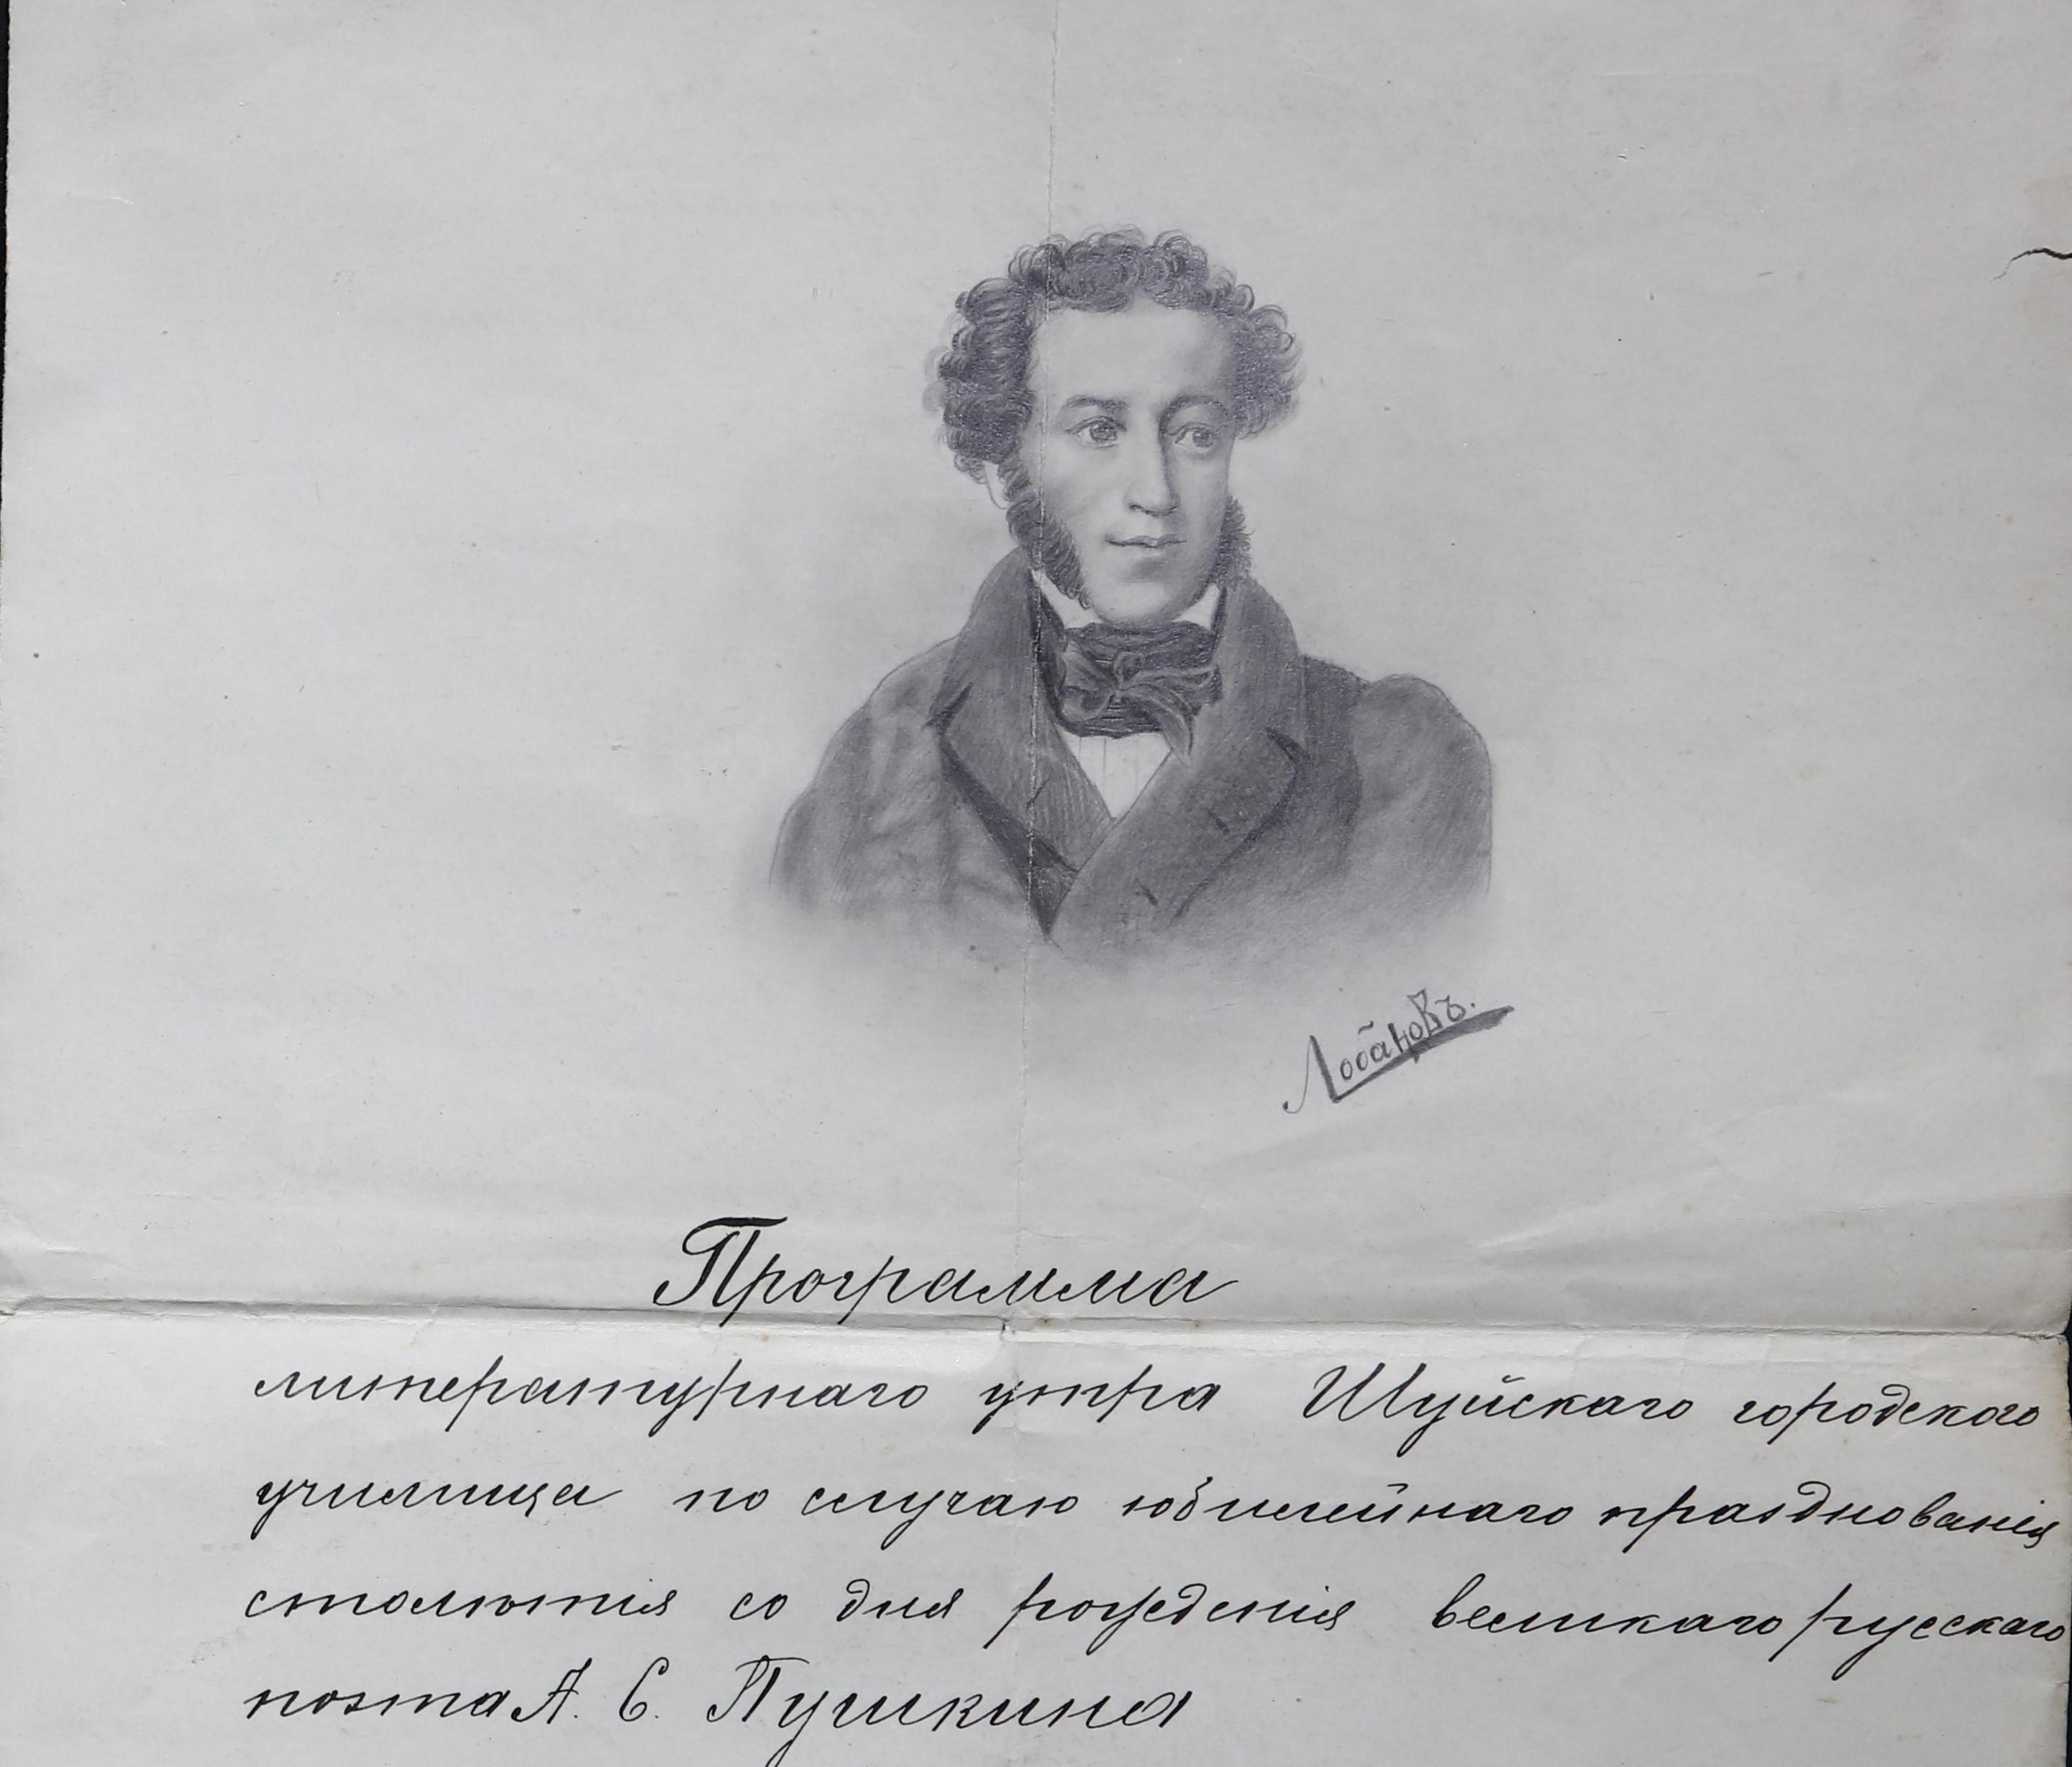 Лобановъ.
Программа
литературнаго утра Шуйскаго городского
училища по случаю юбилейнаго празднованія
столѣтія со дня рожденія великаго русскаго
поэта А. С. Пушкина